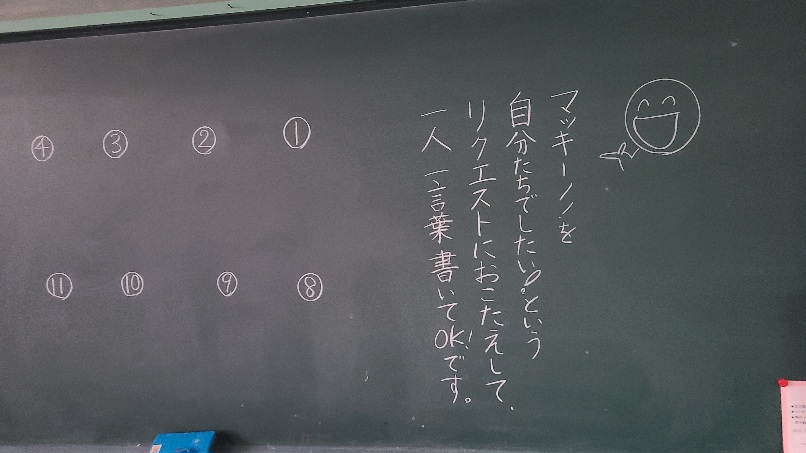 マッキーノを
自分たちでしたい!という
リクエストにおこたえして、
一人 一言葉 書いてOK!です。
①
②
③
④
⑧
⑨
⑩
⑪